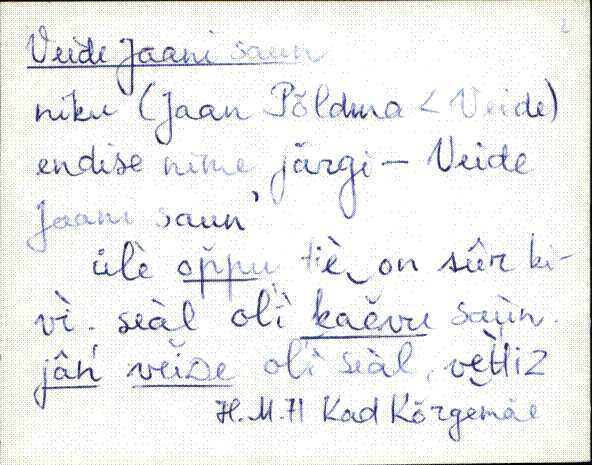 Veide Jaani saun
niku (Jaan Põldma < Veide)
endise nime järgi – Veide
Jaani saun’
ülè oppu, tiè on sûr ki-
vì. seàl olì kaĕvu saùn.
jân veĭDe olì seàl,
H. M. 71 Kad Kõrgemäe